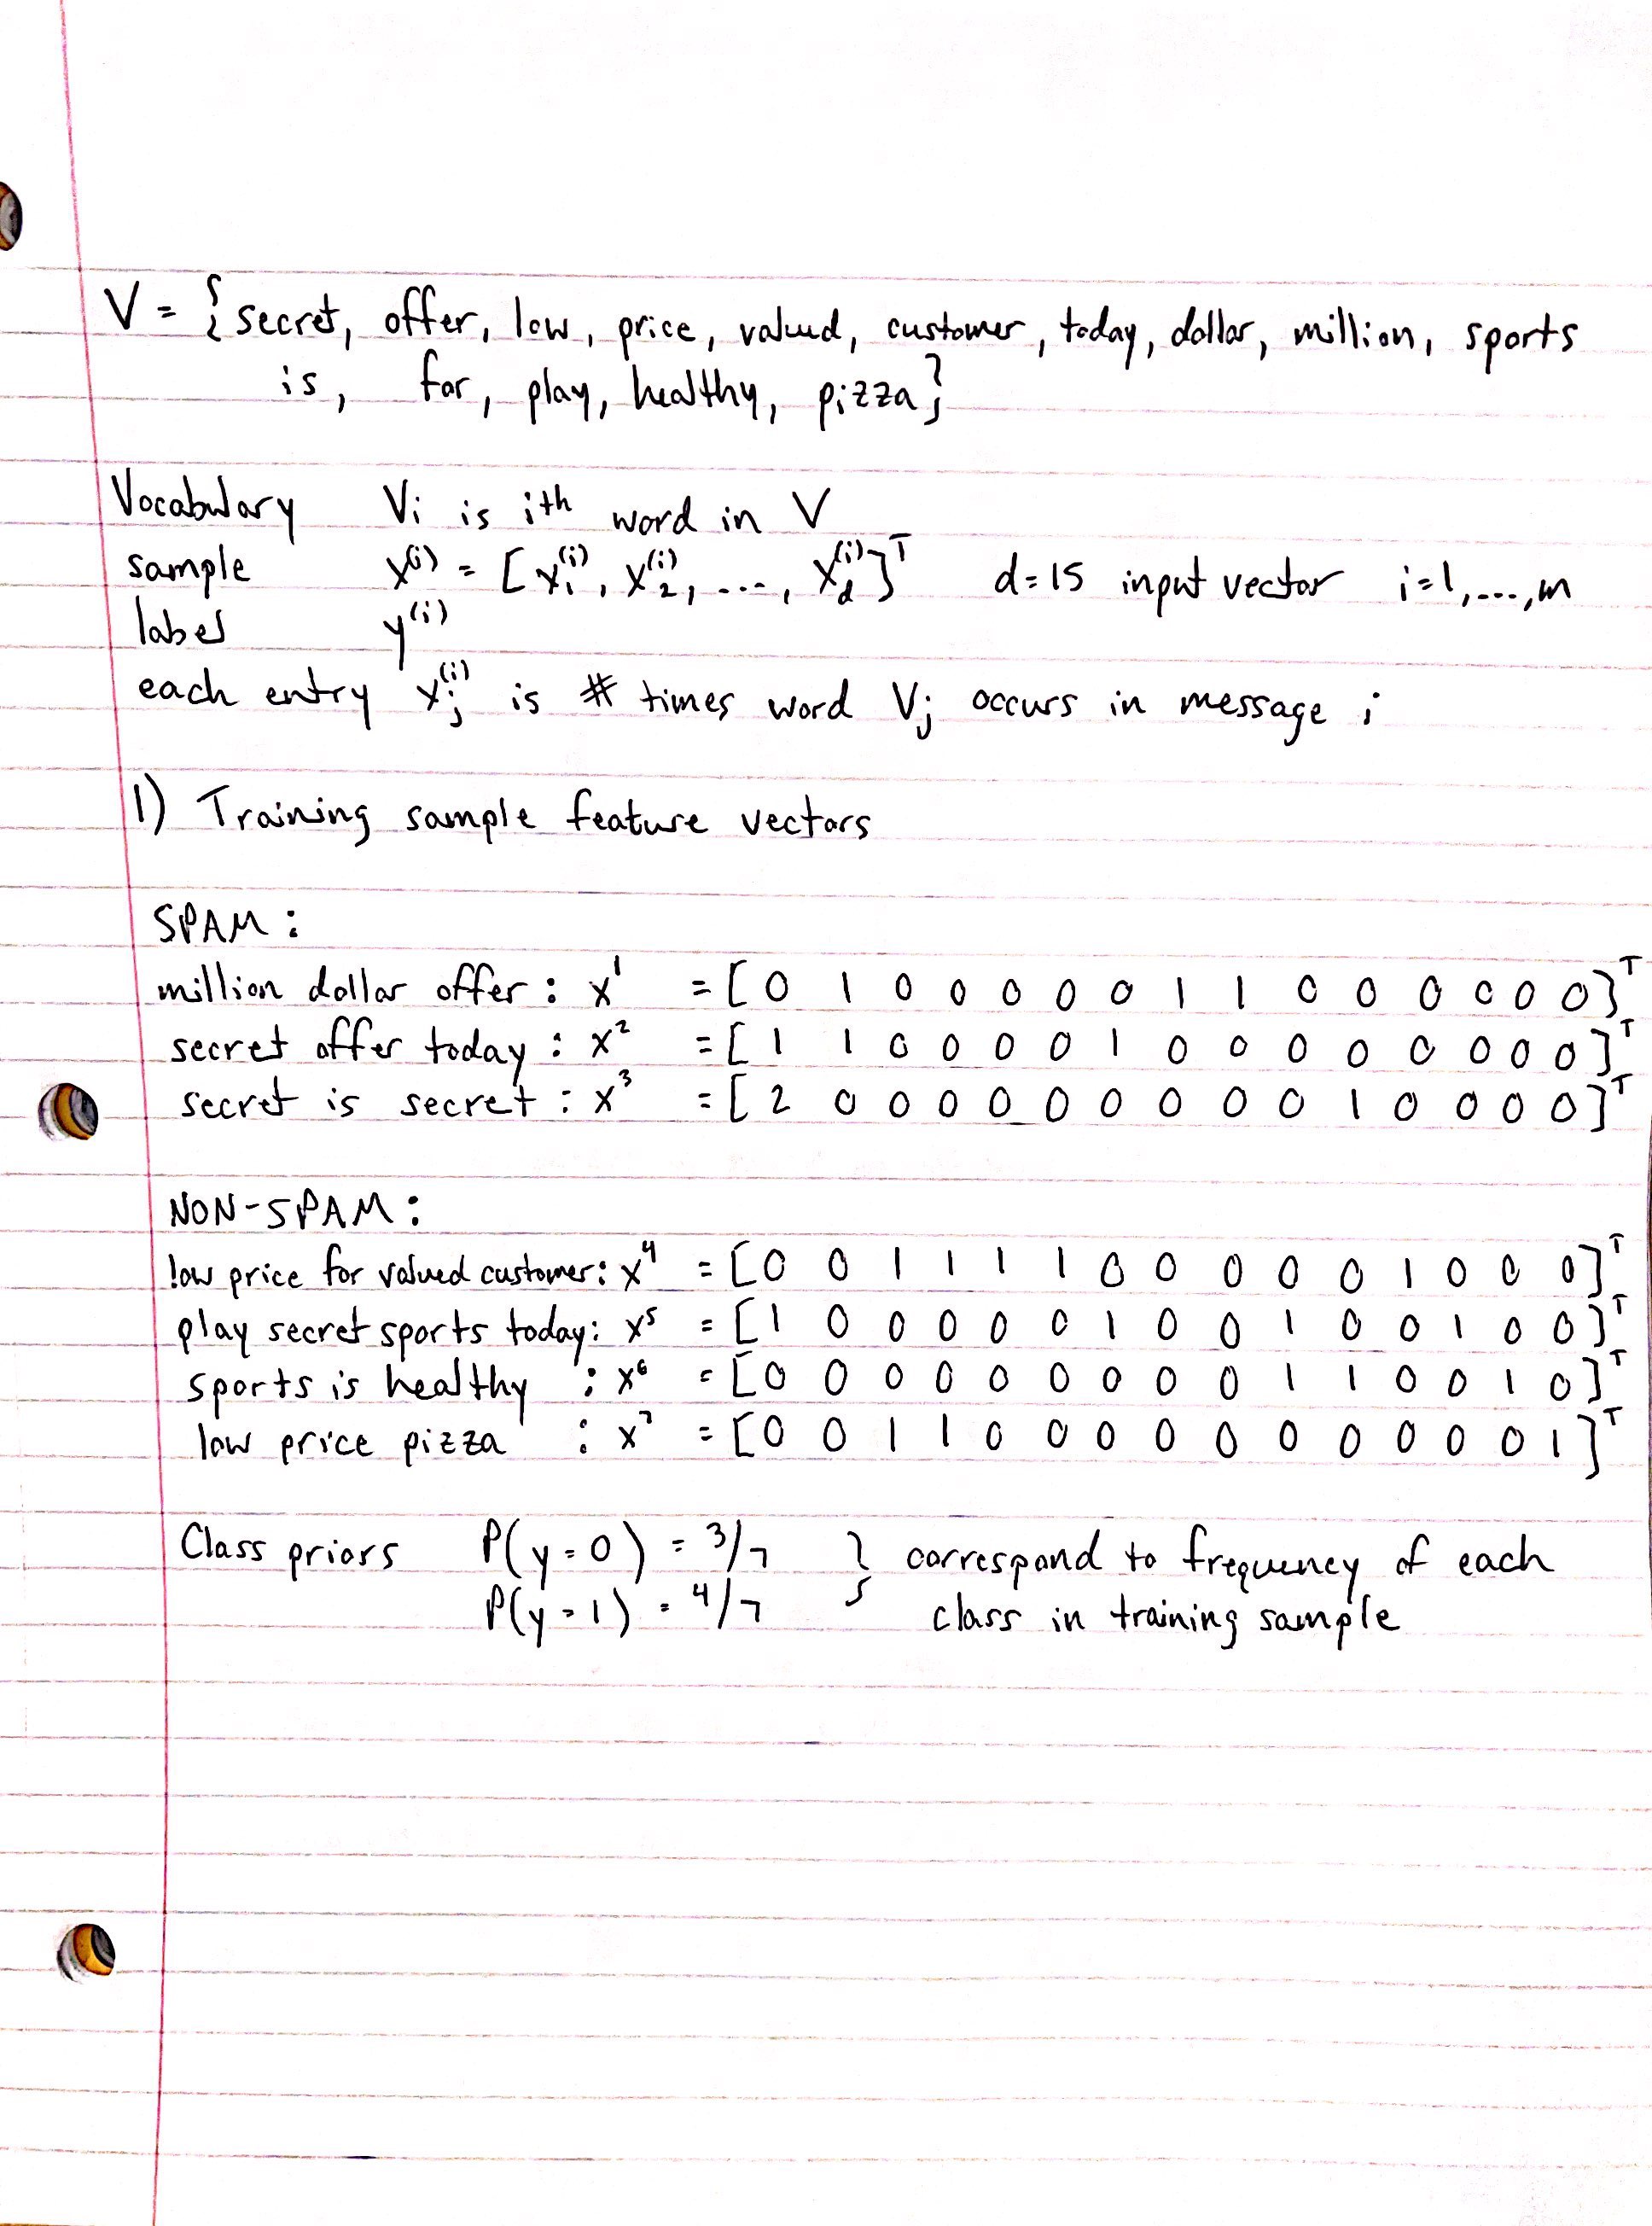 V = { secret, offer, low, price, valued, customer, today, dollar, million, sports
is, for, play, healthy, pizza}
Vocabulary Vi is ith word in V
sample x(i) = [x1(i), x2(i), ..., xd(i)]T d=15 input vector i=1,...,m
label y(i)
each entry xj(i) is # times word Vj occurs in message i
1) Training sample feature vectors
SPAM:
million dollar offer: x1 = [0 1 0 0 0 0 0 1 1 0 0 0 0 0 0]T
secret offer today: x2 = [1 1 0 0 0 0 1 0 0 0 0 0 0 0 0]T
secret is secret: x3 = [2 0 0 0 0 0 0 0 0 0 1 0 0 0 0]T
NON-SPAM:
low price for valued customer: x4 = [0 0 1 1 1 1 0 0 0 0 0 1 0 0 0]T
play secret sports today: x5 = [1 0 0 0 0 0 1 0 0 1 0 0 1 0 0]T
sports is healthy : x6 = [0 0 0 0 0 0 0 0 0 1 1 0 0 1 0]T
low price pizza : x7 = [0 0 1 1 0 0 0 0 0 0 0 0 0 0 1]T
Class priors P(y=0) = 3/7 } correspond to frequency of each
P(y=1) = 4/7 class in training sample